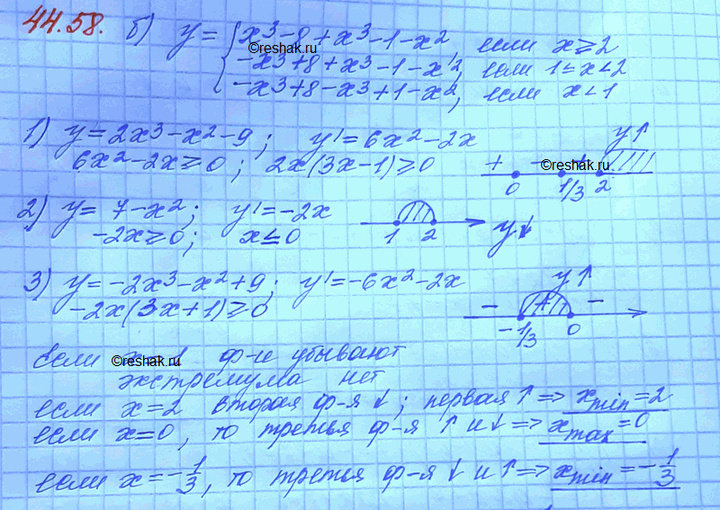 44.58. б) y = { x³-8+x³-1-x², если x≥2
-x³+8+x³-1-x², если 1≤x<2
-x³+8-x³+1-x², если x<1
©reshak.ru
1) y=2x³-x²-9; y'=6x²-2x
6x²-2x≥0; 2x(3x-1)≥0
+ - + y↑
©reshak.ru
0 1/3 2
2) y=7-x²; y'=-2x
-2x≥0; x≤0
1 2 y↓
3) y=-2x³-x²+9; y'=-6x²-2x
-2x(3x+1)≥0
y↑
- + -
-1/3 0
если x=1 ф-и убывают
©reshak.ru
экстремума нет
если x=2 вторая ф-я ↓; первая ↑ ⇒ xmin=2
если x=0, то третья ф-я ↑ и ↓ ⇒ xmax=0
если x=-1/3, то третья ф-я ↓ и ↑ ⇒ xmin=-1/3